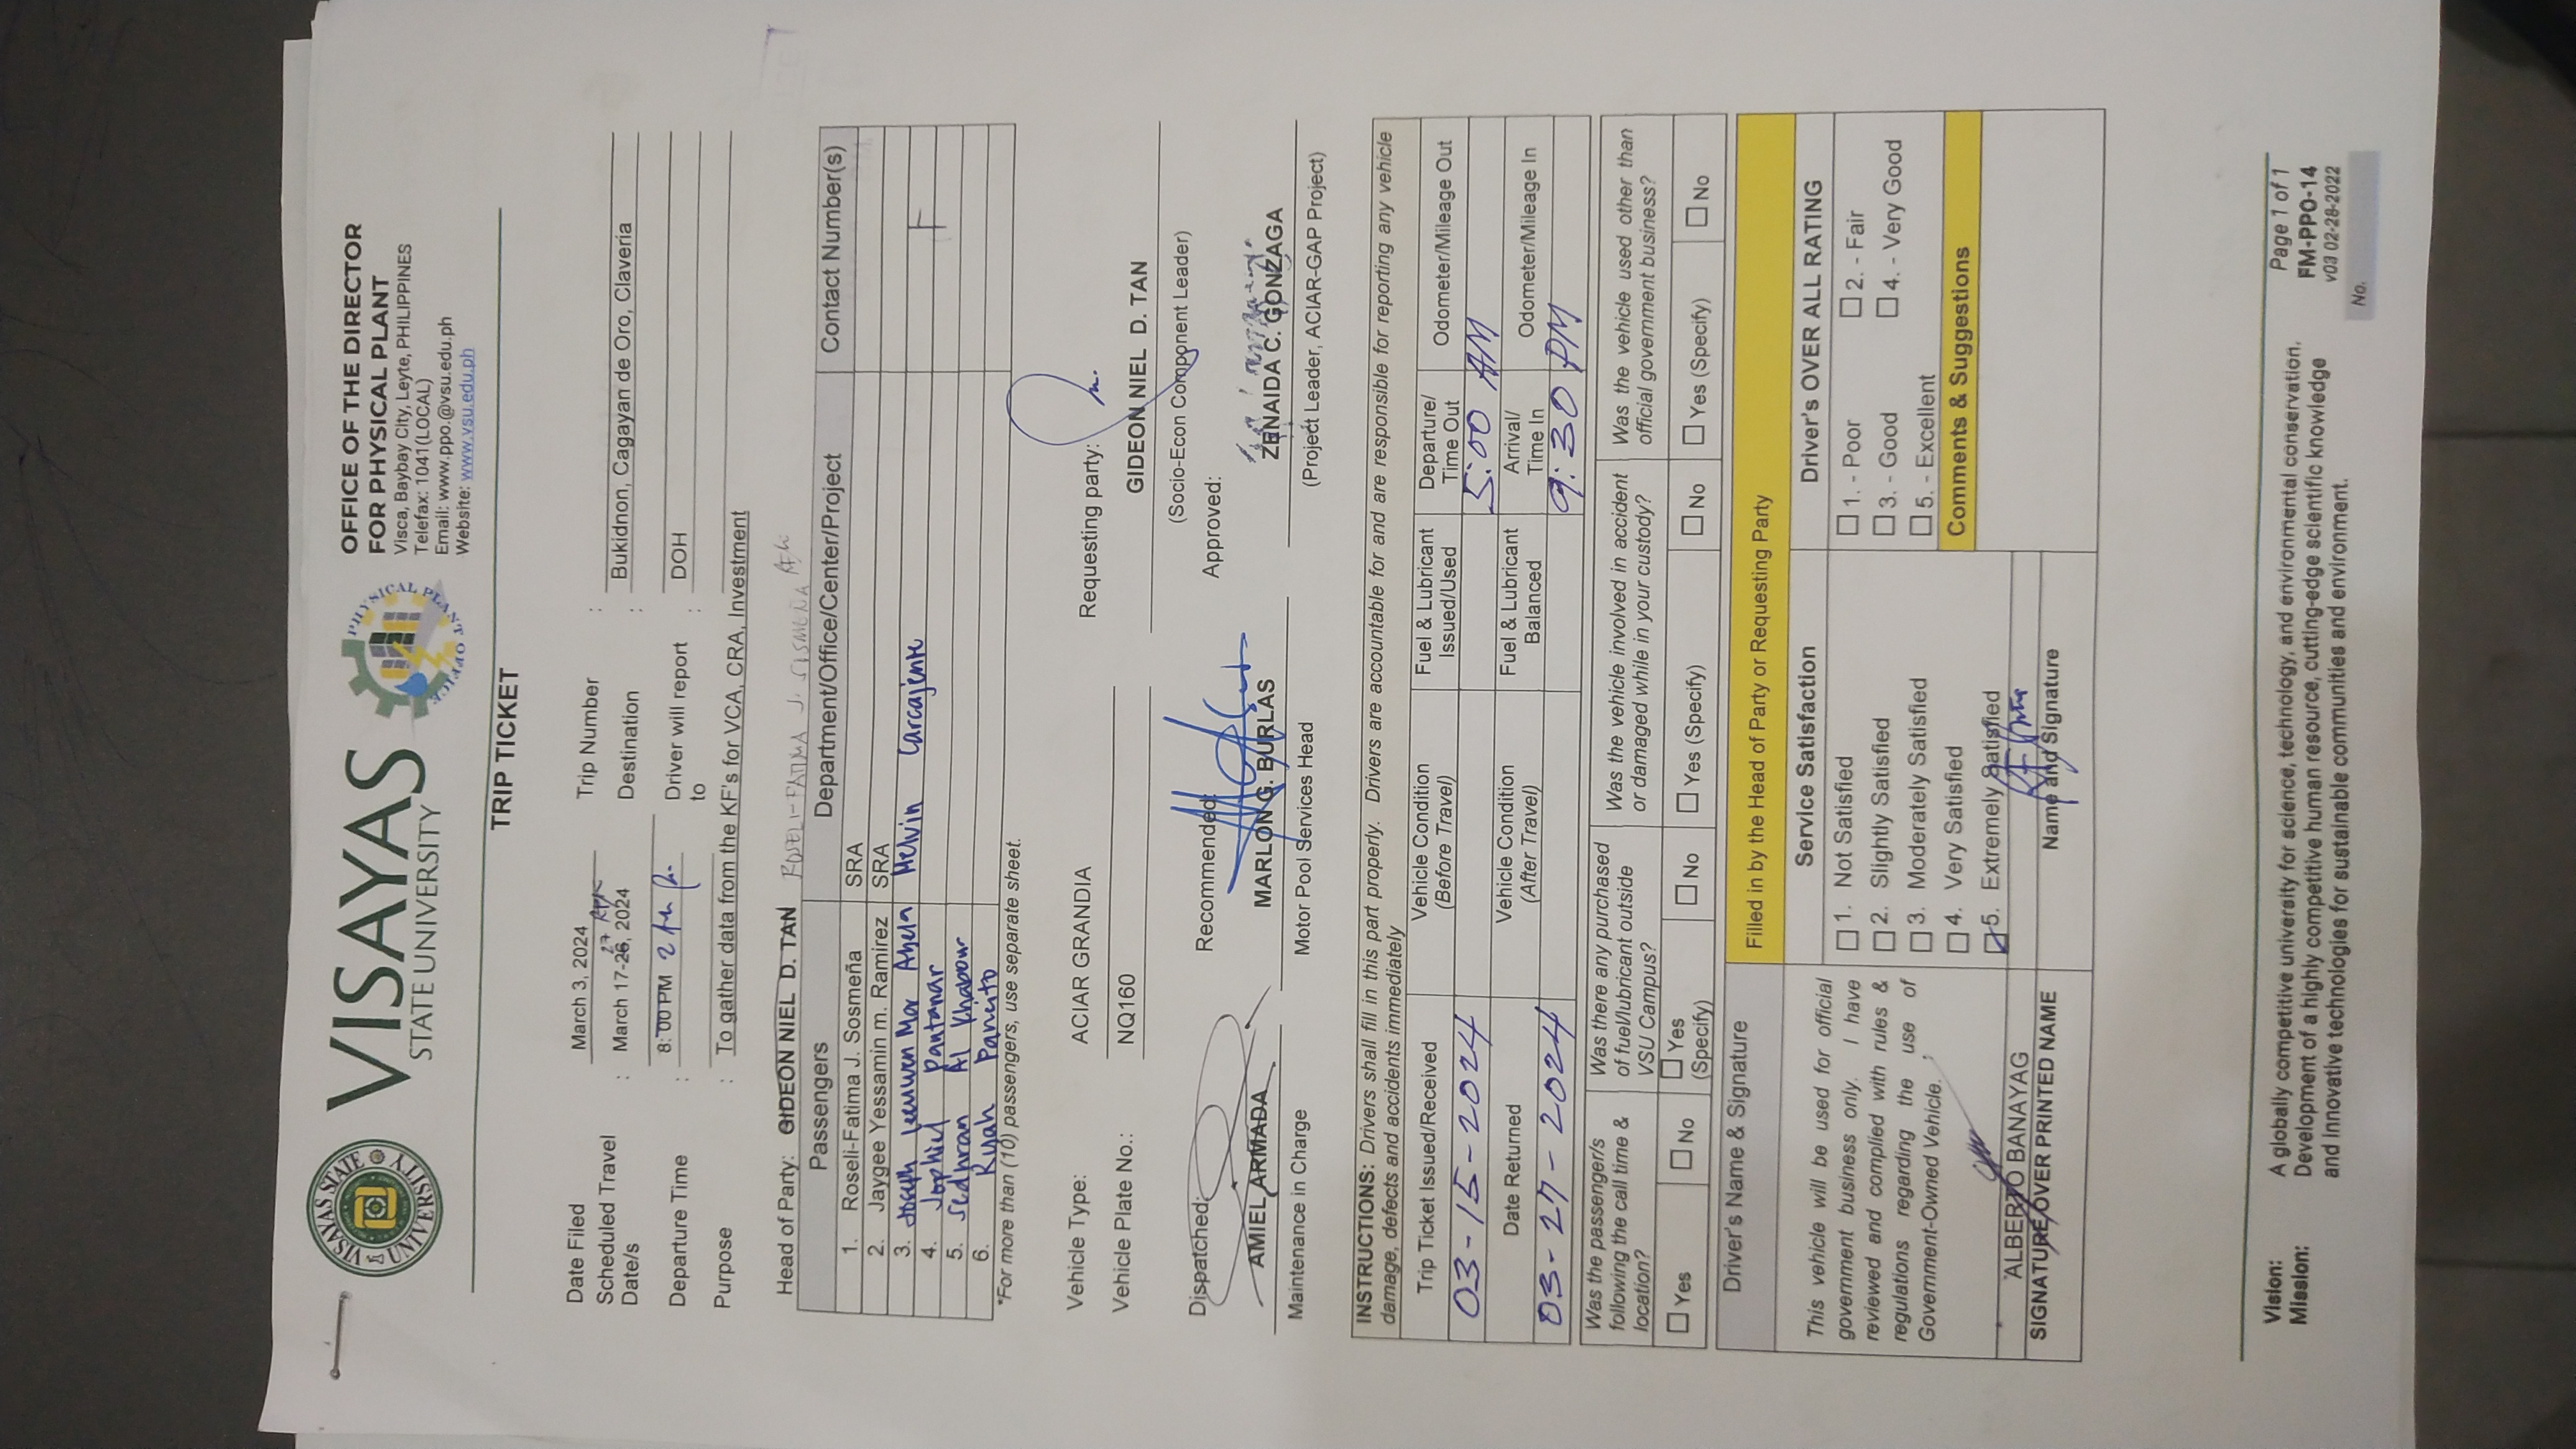 VISAYAS
STATE UNIVERSITY
VISAYAS STATE UNIVERSITY
PHYSICAL PLANT OFFICE
OFFICE OF THE DIRECTOR
FOR PHYSICAL PLANT
Visca, Baybay City, Leyte, PHILIPPINES
Telefax: 1041(LOCAL)
Email: www.ppo.@vsu.edu.ph
Website: www.vsu.edu.ph
TRIP TICKET
Date Filed March 3, 2024 Trip Number :
Scheduled Travel Date/s : March 17-26, 2024 27 Destination : Bukidnon, Cagayan de Oro, Claveria
Departure Time : 8:00 PM 2 Driver will report to : DOH
Purpose : To gather data from the KF's for VCA, CRA, Investment
Head of Party: GIDEON NIEL D. TAN ROSELI-FATIMA J. SOSMEÑA
Passengers Department/Office/Center/Project Contact Number(s)
1. Roseli-Fatima J. Sosmeña SRA
2. Jaygee Yessamin m. Ramirez SRA
3. Joseph Mar Melvin Carcajente
4. Jophiel Pantanar
5. Sedhran Al Khabour
6. Kuyah Pancito
*For more than (10) passengers, use separate sheet.
Vehicle Type: ACIAR GRANDIA
Vehicle Plate No.: NQ160
Requesting party:
GIDEON NIEL D. TAN
(Socio-Econ Component Leader)
Dispatched: Recommended: Approved:
AMIEL ARMADA MARLON G. BURLAS ZENAIDA C. GONZAGA
Maintenance in Charge Motor Pool Services Head (Project Leader, ACIAR-GAP Project)
INSTRUCTIONS: Drivers shall fill in this part properly. Drivers are accountable for and are responsible for reporting any vehicle
damage, defects and accidents immediately
Trip Ticket Issued/Received Vehicle Condition (Before Travel) Fuel & Lubricant Issued/Used Departure/ Time Out Odometer/Mileage Out
03-15-2024 5:00 AM
Date Returned Vehicle Condition (After Travel) Fuel & Lubricant Balanced Arrival/ Time In Odometer/Mileage In
03-27-2024 9:30 PM
Was the passenger/s following the call time & location? Was there any purchased of fuel/lubricant outside VSU Campus? Was the vehicle involved in accident or damaged while in your custody? Was the vehicle used other than official government business?
☐ Yes ☐ No ☐ Yes (Specify) ☐ No ☐ Yes (Specify) ☐ No ☐ Yes (Specify) ☐ No
Driver's Name & Signature Filled in by the Head of Party or Requesting Party
This vehicle will be used for official
government business only. I have
reviewed and complied with rules &
regulations regarding the use of
Government-Owned Vehicle.
ALBERTO BANAYAG
SIGNATURE OVER PRINTED NAME
Service Satisfaction
☐ 1. Not Satisfied
☐ 2. Slightly Satisfied
☐ 3. Moderately Satisfied
☐ 4. Very Satisfied
☑ 5. Extremely Satisfied
Name and Signature
Driver's OVER ALL RATING
☐ 1. - Poor ☐ 2. - Fair
☐ 3. - Good ☐ 4. - Very Good
☐ 5. - Excellent
Comments & Suggestions
Vision: A globally competitive university for science, technology, and environmental conservation.
Mission: Development of a highly competitive human resource, cutting-edge scientific knowledge
and innovative technologies for sustainable communities and environment.
Page 1 of 1
FM-PPO-14
v03 02-28-2022
No.